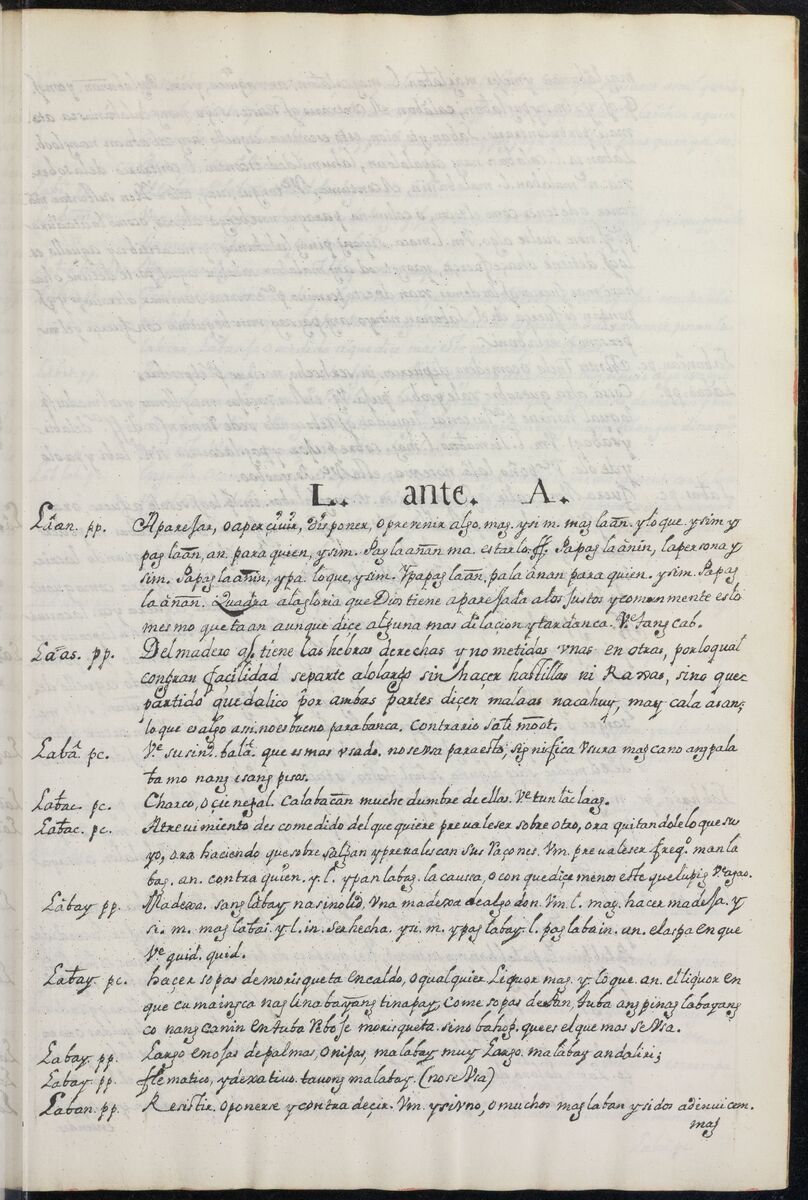 L. ante. A.
Laan. pp. Aparejar, o apercivir, disponer, o prevenir algo. mag. y si m. maglaan. y lo que. y sim y
paglaan, an. para quien, y sim. Paglaanan ma. estarlo. Papaglaanin, la persona y
sim. Papaglaanin, y pa. lo que, y sim. Ypapaglaan, pala anan para quien. y sim. Papag
laanan. Quadra ala gloria que Dios tiene aparejada alos Justos y comunmente es lo
mesmo que taan aunque dice alguna mas dilacion, y tardanca. Ve. tangcab.
Laas. pp. Del madero q tiene las hebras derechas y no metidas vnas en otras, por lo qual
con gran facilidad separte alo largo sin hacer hastillas ni Raxas, sino que
partido quedalico por ambas partes dicen malaas na cahuy, may calaasang
lo que es algo asi. no es bueno para banca. contrario salimoot.
Laba. pc. Ve. su sino. bala. que es mas vsado. no se vsa para esto; significa vsura magcano ang pala
ba mo nang isang pisos.
Labac. pc. Charco, o cienegal. Calabacan muchedumbre de ellas. Ve tunlac laag.
Labac. pc. Atrevimiento descomedido del que quiere prevaleser sobre otro, ora quitandole lo que su
yo, ora haciendo que sobre salgan y prevalescan sus raçones. Vm. prevaleser freqo. manla
bag. an. contra quien. y l. ypanlabag. la caussa, o con que dice menos este que lupig Ve. agao.
Labay pp. Madexa. sang labay na sinolid. Vna madexa de algodon. Vm. l. mag. hacer madeja. y
si. m. maglabai. y l. in. ser hecha. y si. m. ypaglabay. l. paglabain. un. el aspa en que
Ve. quid. quid.
Labay. pc. hacer sopas de morisqueta en caldo, o qualquier Liquor mag. y lo que. an. el liquor en
que cumaing ca nag linabayang tinapay, come sopas de pan, tuba ang pinaglabayang
co nang canin en tuba Reboje morisqueta. sino bahog. que es el que mas se Vsa.
Labay. pp. Largo en ojas de palmas, o nipas, malabay muy Largo. malabay an daliri;
Labay. pp. flematico, y dexativo. tauong malabay. (no se Vsa)
Laban. pp. Resistir. oponerse y contradecir. Vm. y si vno, o muchos mag laban y si dos adinuicem.
mag